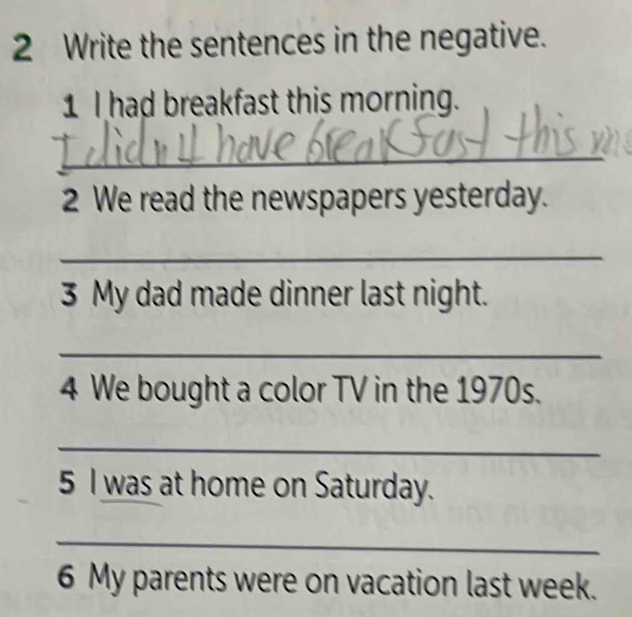 2 Write the sentences in the negative.
1 I had breakfast this morning.
I didn't have breakfast this
2 We read the newspapers yesterday.
3 My dad made dinner last night.
4 We bought a color TV in the 1970s.
5 I was at home on Saturday.
6 My parents were on vacation last week.